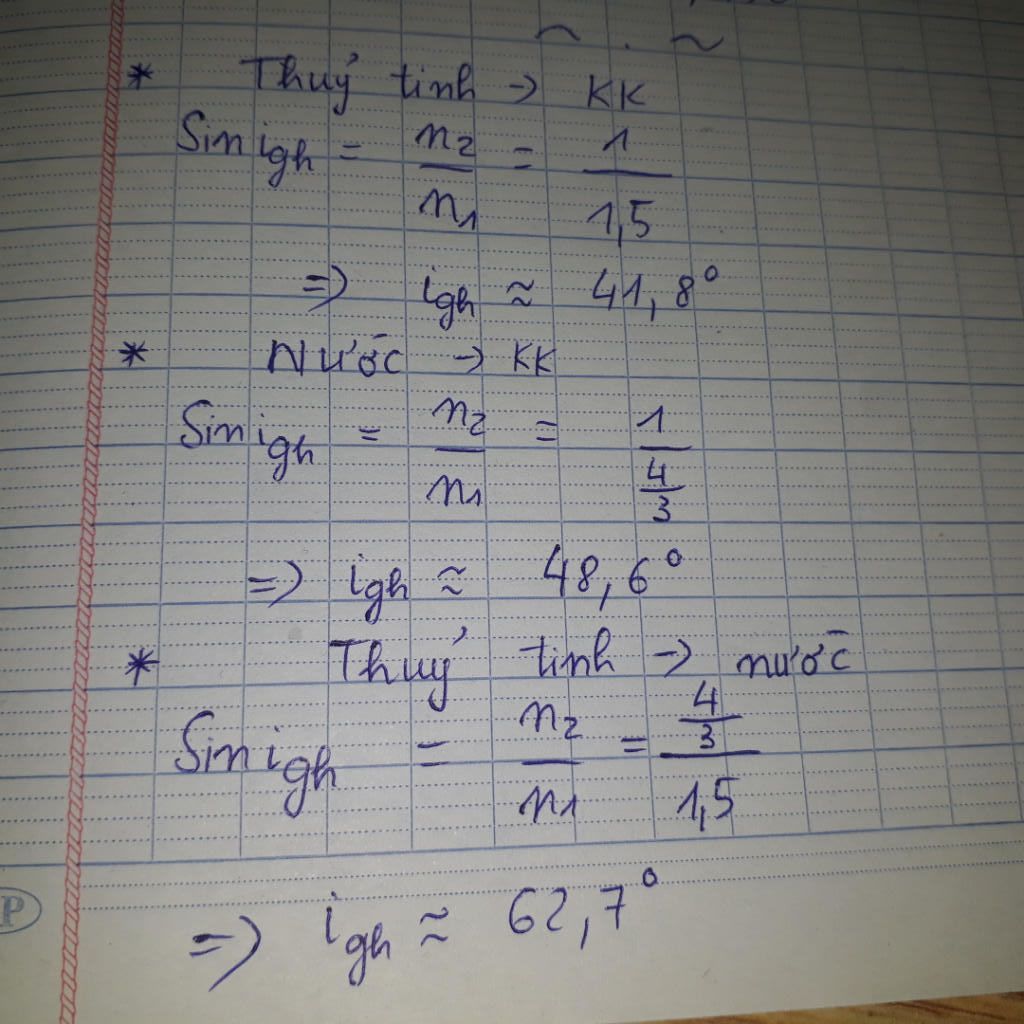 * Thuỷ tinh → KK
Sin igh = n2/n1 = 1/1,5
=> igh ≈ 41,8°
* Nước → KK
Sin igh = n2/n1 = 1/(4/3)
=> igh ≈ 48,6°
* Thuỷ tinh → nước
Sin igh = n2/n1 = (4/3)/1,5
=> igh ≈ 62,7°
P